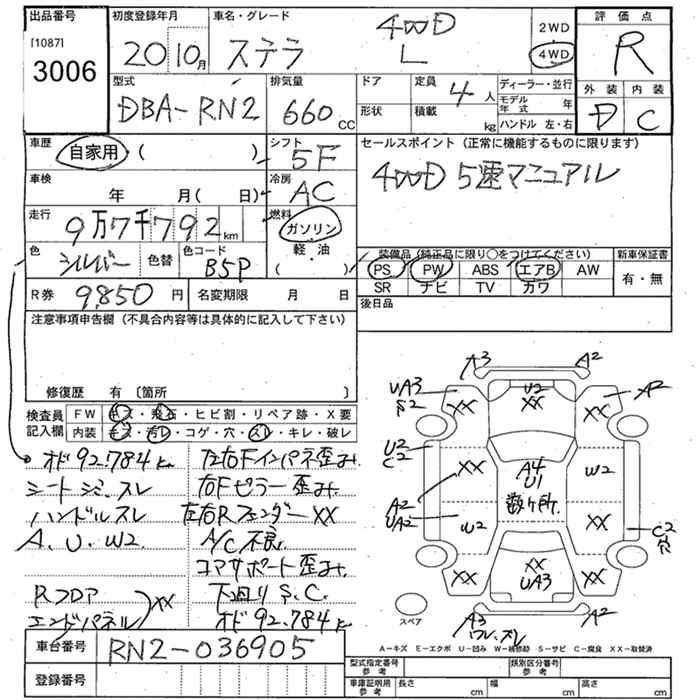 出品番号
[1087]
3006
初度登録年月
20 10月
車名・グレード
ステラ
4WD
L
2WD
4WD
評価点
R
外装 内装
D C
型式
DBA-RN2
排気量
660 cc
ドア
形状
定員
4人
積載
kg
ディーラー・並行
モデル年式 年
ハンドル 左・右
車歴
自家用 ( )
シフト
5F
セールスポイント(正常に機能するものに限ります)
4WD 5速マニュアル
車検
年 月( 日)
冷房
AC
走行
9万7千792km
燃料
ガソリン
軽・油
( )
色
シルバー
色替
色コード
B5P
装備品(純正品に限り○をつけてください)
PS PW ABS エアB AW
SR ナビ TV カワ
新車保証書
有・無
R券
9,850円
名変期限 月 日
後日品
注意事項申告欄(不具合内容等は具体的に記入して下さい)
修復歴 有〔箇所 〕
検査員記入欄
FW キズ・飛石・ヒビ割・リペア跡・X要
内装 キズ・汚レ・コゲ・穴・スレ・キレ・破レ
オド92.784k
シートシミ、スレ
ハンドルスレ
A、U、W2
Rフロア
エンドパネル
XX
左右Fインパネ歪み
右Fピラー歪み
左右Rフェンダー XX
A/C不良
コアサポート歪み
下回りS、C
オド92.784k
A3
A2
UA3
S2
U2
XX
XX
XX
A2
U2
C2
XX
A4
U1
数ヶ所
W2
A2
UA2
W2
XX
C2
R
XX
XX
UA3
XX
スペア
A3
ワレ、スレ
A2
A-キズ E-エクボ U-凹み W-補修跡 S-サビ C-腐食 XX-取替済
車台番号
RN2-036905
登録番号
型式指定番号
参考
類別区分番号
参考
車庫証明用
参考
長さ
cm
幅
cm
高さ
cm